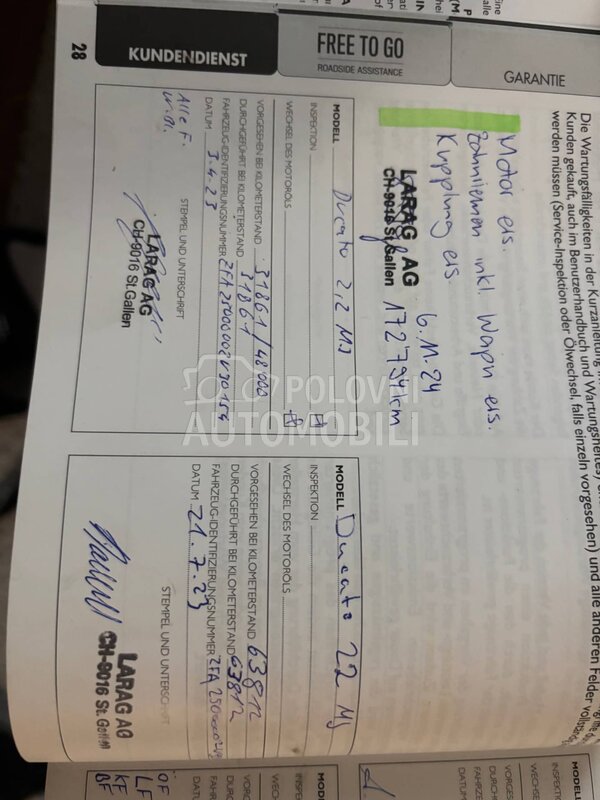 28
KUNDENDIENST
FREE TO GO
ROADSIDE ASSISTANCE
GARANTIE
Die Wartungsfälligkeiten in der Kurzanleitung
Kunden gekauft, auch im Benutzerhandbuch und Wartungsheftes)
werden müssen (Service-Inspektion oder Ölwechsel, falls einzeln vorgesehen) und alle anderen Felder
Motor ers.
Zahnriemen inkl. Wapu ers.
Kupplung ers.
LARAG AG
CH-9016 St.Gallen
6.11.24
172794km
MODELL Ducato 2,2 MJ
INSPEKTION
WECHSEL DES MOTORÖLS
VORGESEHEN BEI KILOMETERSTAND 31861/48'000
DURCHGEFÜHRT BEI KILOMETERSTAND 31861
FAHRZEUG-IDENTIFIZIERUNGSNUMMER
DATUM 3.4.23
STEMPEL UND UNTERSCHRIFT
LARAG AG
CH-9016 St.Gallen
MODELL Ducato 22 MJ
INSPEKTION
WECHSEL DES MOTORÖLS
VORGESEHEN BEI KILOMETERSTAND 63812
DURCHGEFÜHRT BEI KILOMETERSTAND 63812
FAHRZEUG-IDENTIFIZIERUNGSNUMMER
DATUM 21.7.23
STEMPEL UND UNTERSCHRIFT
LARAG AG
CH-9016 St. Gallen
MODELL
INSPEKTION
WECHSEL
VORGES
DURCH
FAHRZE
DATUM
ÖF
LF
KF
BF
POLOVNI
AUTOMOBILI